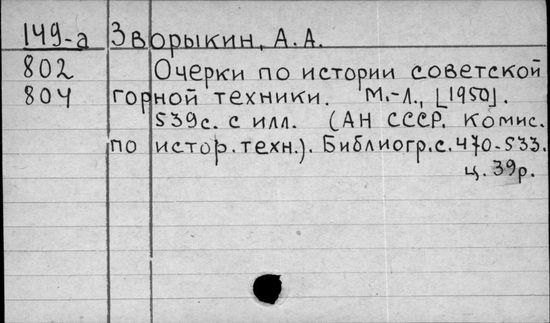 149-а Зворыкин, А.А.
802 Очерки по истории советской
804 горной техники. М.-Л., [1950].
539с. с илл. (АН СССР. Комис.
по истор. техн.). Библиогр.с.470-533.
ц. 39р.